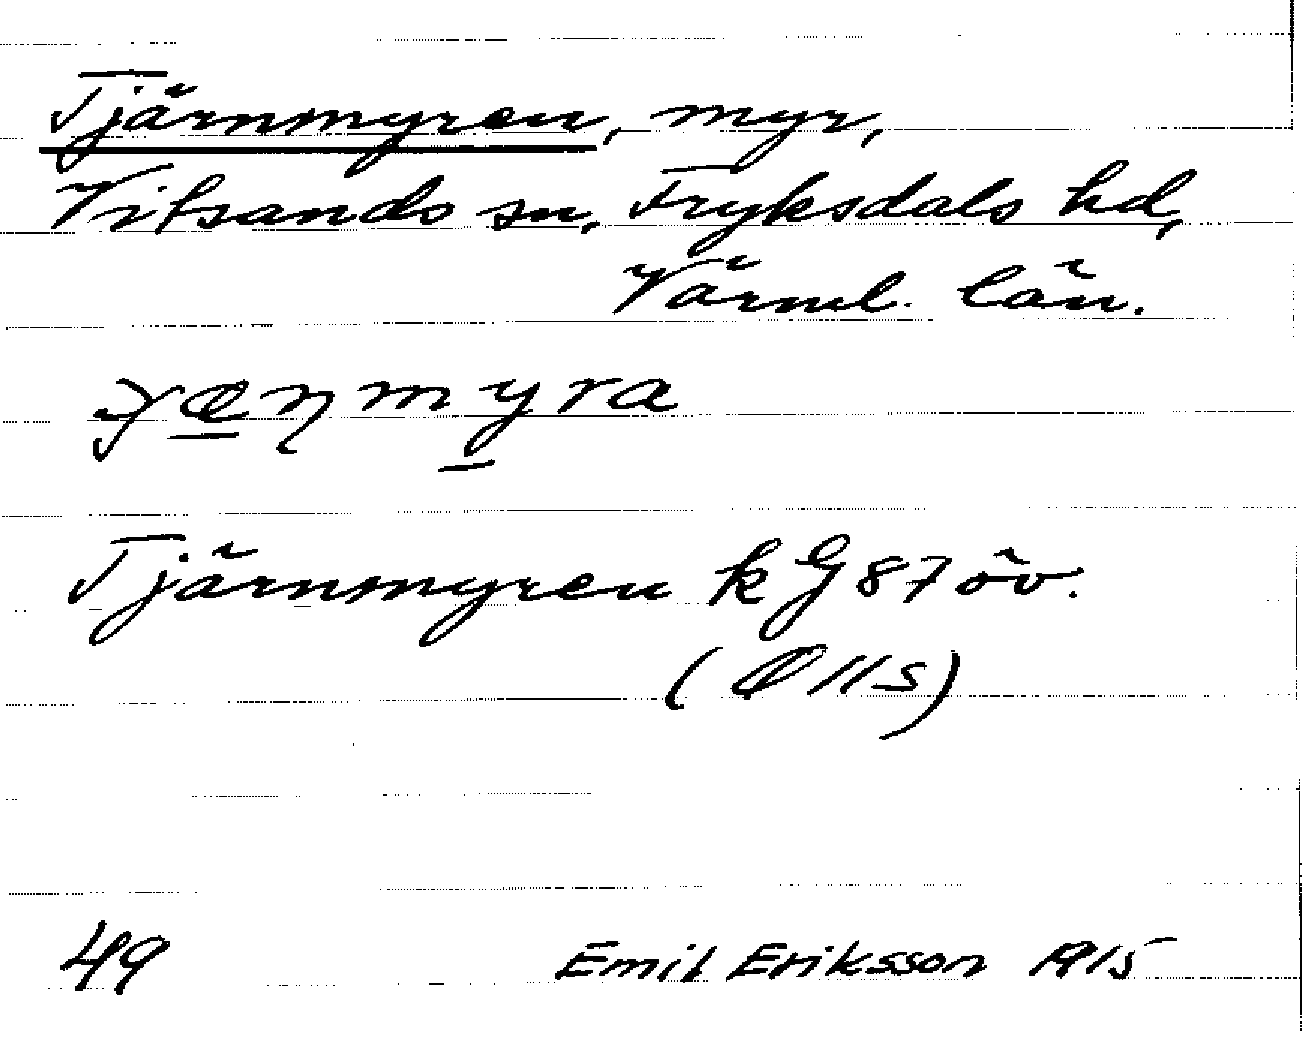 Tjärnmyren, myr,
Vitsands sn, Fryksdals hd,
Värml. län.
ɟæŋmyra
Tjärnmyren k G 87 öv.
(Ø 11 s)
49 Emil Eriksson 1915